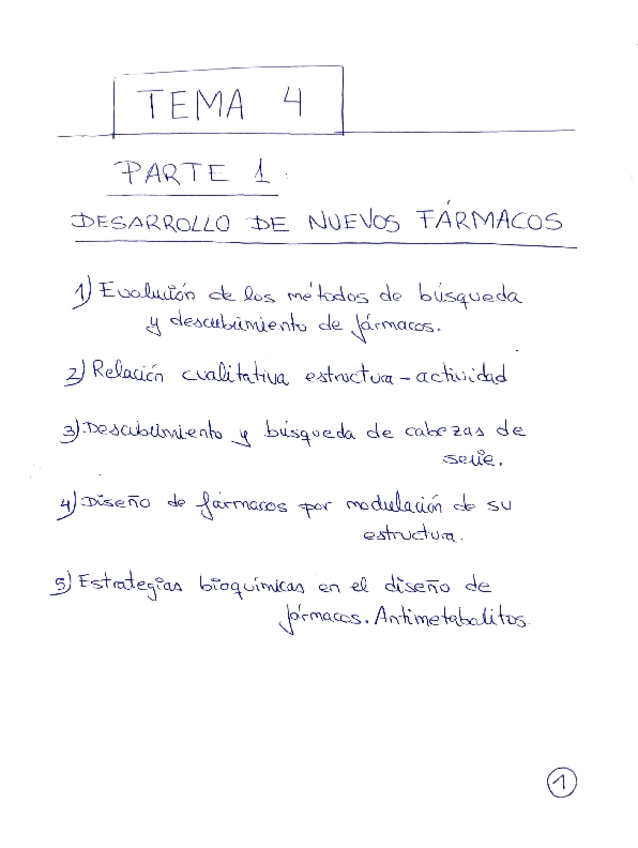 TEMA 4
PARTE 1.
DESARROLLO DE NUEVOS FÁRMACOS
1) Evolución de los métodos de búsqueda
y descubrimiento de fármacos.
2) Relación cualitativa estructura - actividad
3) Descubrimiento y búsqueda de cabezas de
serie.
4) Diseño de fármacos por modulación de su
estructura.
5) Estrategias bioquímicas en el diseño de
fármacos. Antimetabolitos.
1